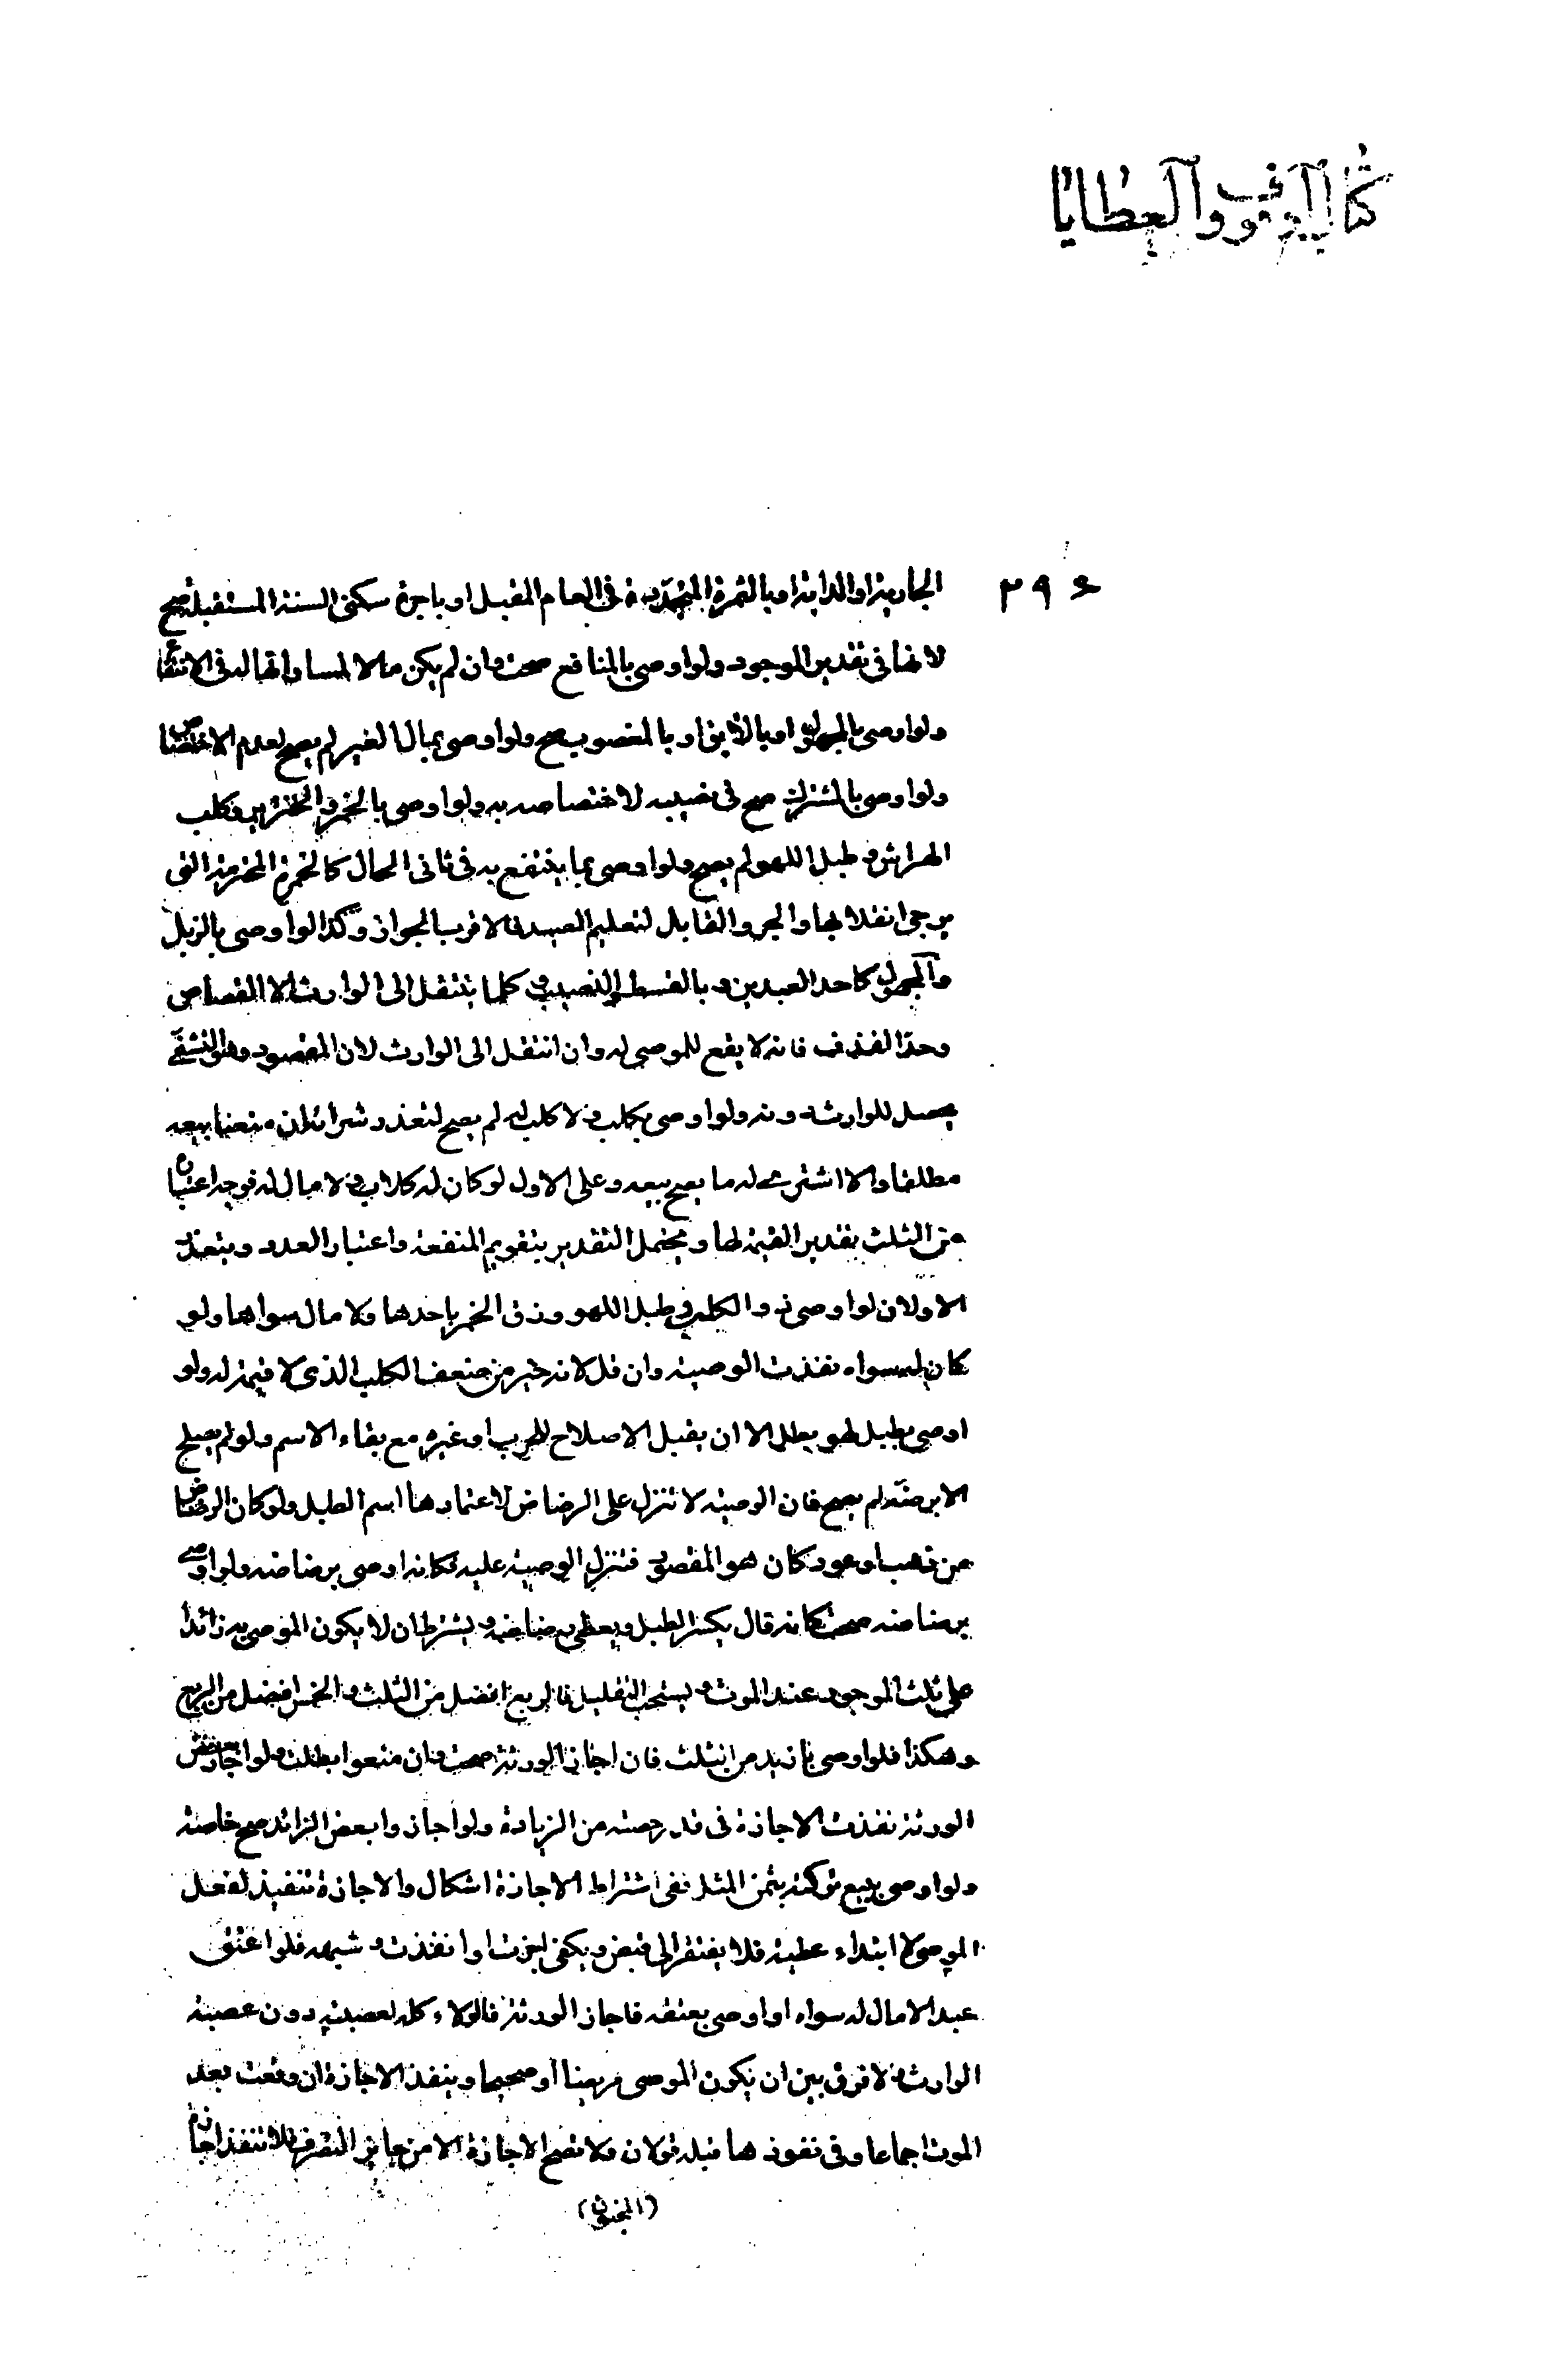 كتاب الوقوف والعطايا
٢٩٤
الجارية او الدابة او بالثمرة المتجددة فى العام المقبل او باجرة سكنى السنة المستقبلة صح
لانها فى تقدير الموجود ولو اوصى بالمنافع صحت وان لم يكن مالا لمساواتها له فى الانتفا
ولو اوصى بالمجهول او بالآبق او بالمغصوب صح ولو اوصى بمال الغير لم يصح لعدم الاختصاص
ولو اوصى بالمشترك صح فى نصيبه لاختصاصه به ولو اوصى بالخمر والخنزير وكلب
الهراش و طبل اللهو لم يصح ولو اوصى بما ينتفع به فى ثانى الحال كالخمرة المحترمة التى
يرجى انقلابها والجرو القابل لتعليم الصيد فالاقرب الجواز وكذا لو اوصى بالزبل
والمجهول كاحد العبدين و بالقسط والنصيب و كلما ينتقل الى الوارث الا القصاص
وحد القذف فانه لا يقع للموصى له وان انتقل الى الوارث لان المقصود وهو التشفى
يحصل للوارث دونه ولو اوصى بكلب ولا كلب له لم يصح لتعذر شرائه ان منعنا بيعه
مطلقا والا اشترى له ما يصح بيعه وعلى الاول لو كان له كلاب ولا مال له فوجه اعتبار
من الثلث بقدير القيمة لها و يحتمل التقدير بتقويم المنفعة واعتبار العدد ويتعذر
الاولان لو اوصى ذو الكلب و طبل اللهو وزق الخمر باحدها ولا مال سواها ولو
كان له سواه نفذت الوصية وان قل لانه خير من ضعف الكلب الذى لا قيمة له ولو
اوصى بطبل لهو بطل الا ان يقبل الاصلاح للحرب او غيره مع بقاء الاسم ولو لم يصلح
الا برضّه لم يصح فان الوصية لا تنزل على الرضاض لاعتمادها اسم الطبل ولو كان الرضاض
من ذهب او عود كان هو المقصود فتنزل الوصية عليه فكانه اوصى برضاضه ولو اوصى
برضاضه صحت كانه قال يكسر الطبل ويعطى رضاضه و يشترط ان لا يكون الموصى به زائدا
على ثلث الموجود عند الموت و يستحب التقليل فالربع افضل من الثلث و الخمس افضل من الربع
وهكذا فلو اوصى بازيد من الثلث فان اجاز الورثة صحت وان منعوا بطلت ولو اجاز بعض
الورثة نفذت الاجازة فى قدر حصته من الزيادة ولو اجازوا بعض الزائد صح خاصة
ولو اوصى ببيع تركته بثمن المثل ففى اشتراط الاجازة اشكال والاجازة تنفيذ لفعل
الموصى لا ابتداء عطية فلا يفتقر الى قبض ويكفى اجزت او انفذت و شبهه فلو اعتق
عبدا لا مال له سواه او اوصى بعتقه فاجاز الورثة فالولاء كله لعصبته دون عصبة
الوارث ولا فرق بين ان يكون الموصى مريضا او صحيحا وينفذ الاجازة ان وقعت بعد
الموت اجماعا وفى نفوذها قبله قولان ولا تصح الاجازة الا من جايز التصرف فلا تنفذ اجازة
(المجنون)